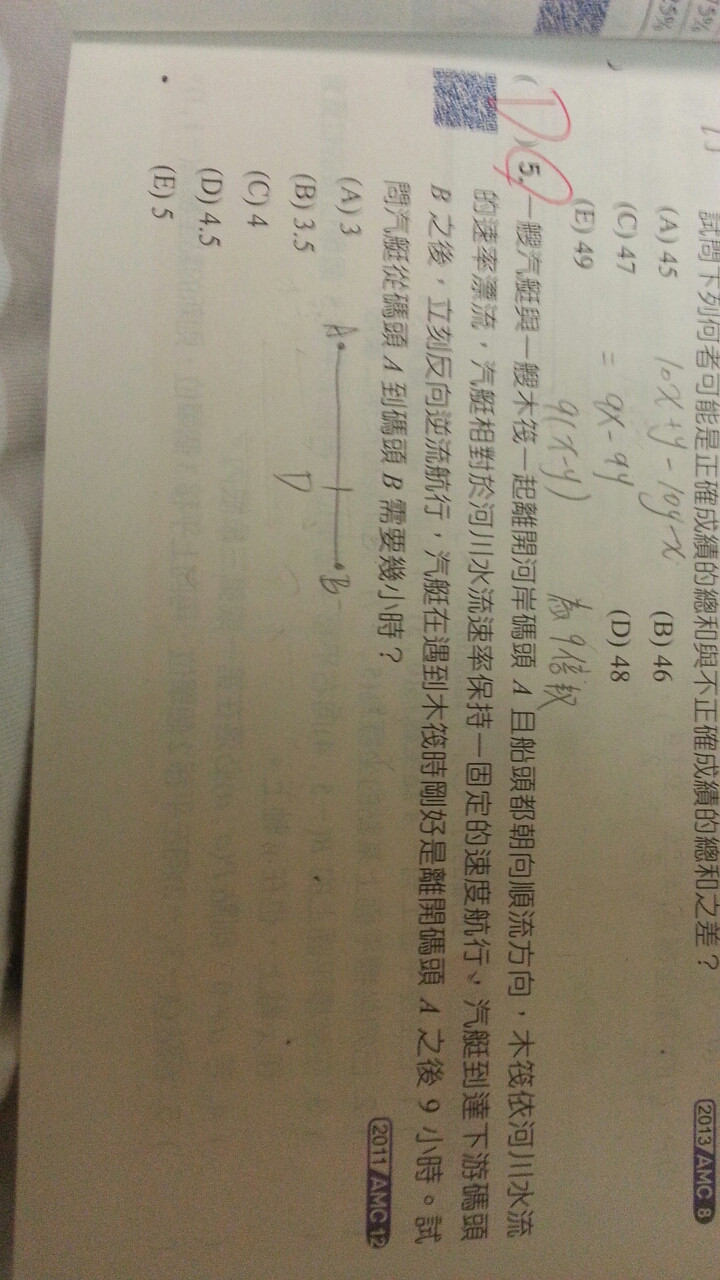 試問下列何者可能是正確成績的總和與不正確成績的總和之差？
2013/AMC 8
(A) 45
(B) 46
(C) 47
(D) 48
(E) 49
10x+y-10y-x
= 9x-9y
9(x-y)
為9倍數
(D) 5. 一艘汽艇與一艘木筏一起離開河岸碼頭 A 且船頭都朝向順流方向，木筏依河川水流
的速率漂流，汽艇相對於河川水流速率保持一固定的速度航行、汽艇到達下游碼頭
B 之後，立刻反向逆流航行，汽艇在遇到木筏時剛好是離開碼頭 A 之後 9 小時。試
問汽艇從碼頭 A 到碼頭 B 需要幾小時？
2011/AMC 12
(A) 3
(B) 3.5
(C) 4
(D) 4.5
(E) 5
A
B
D